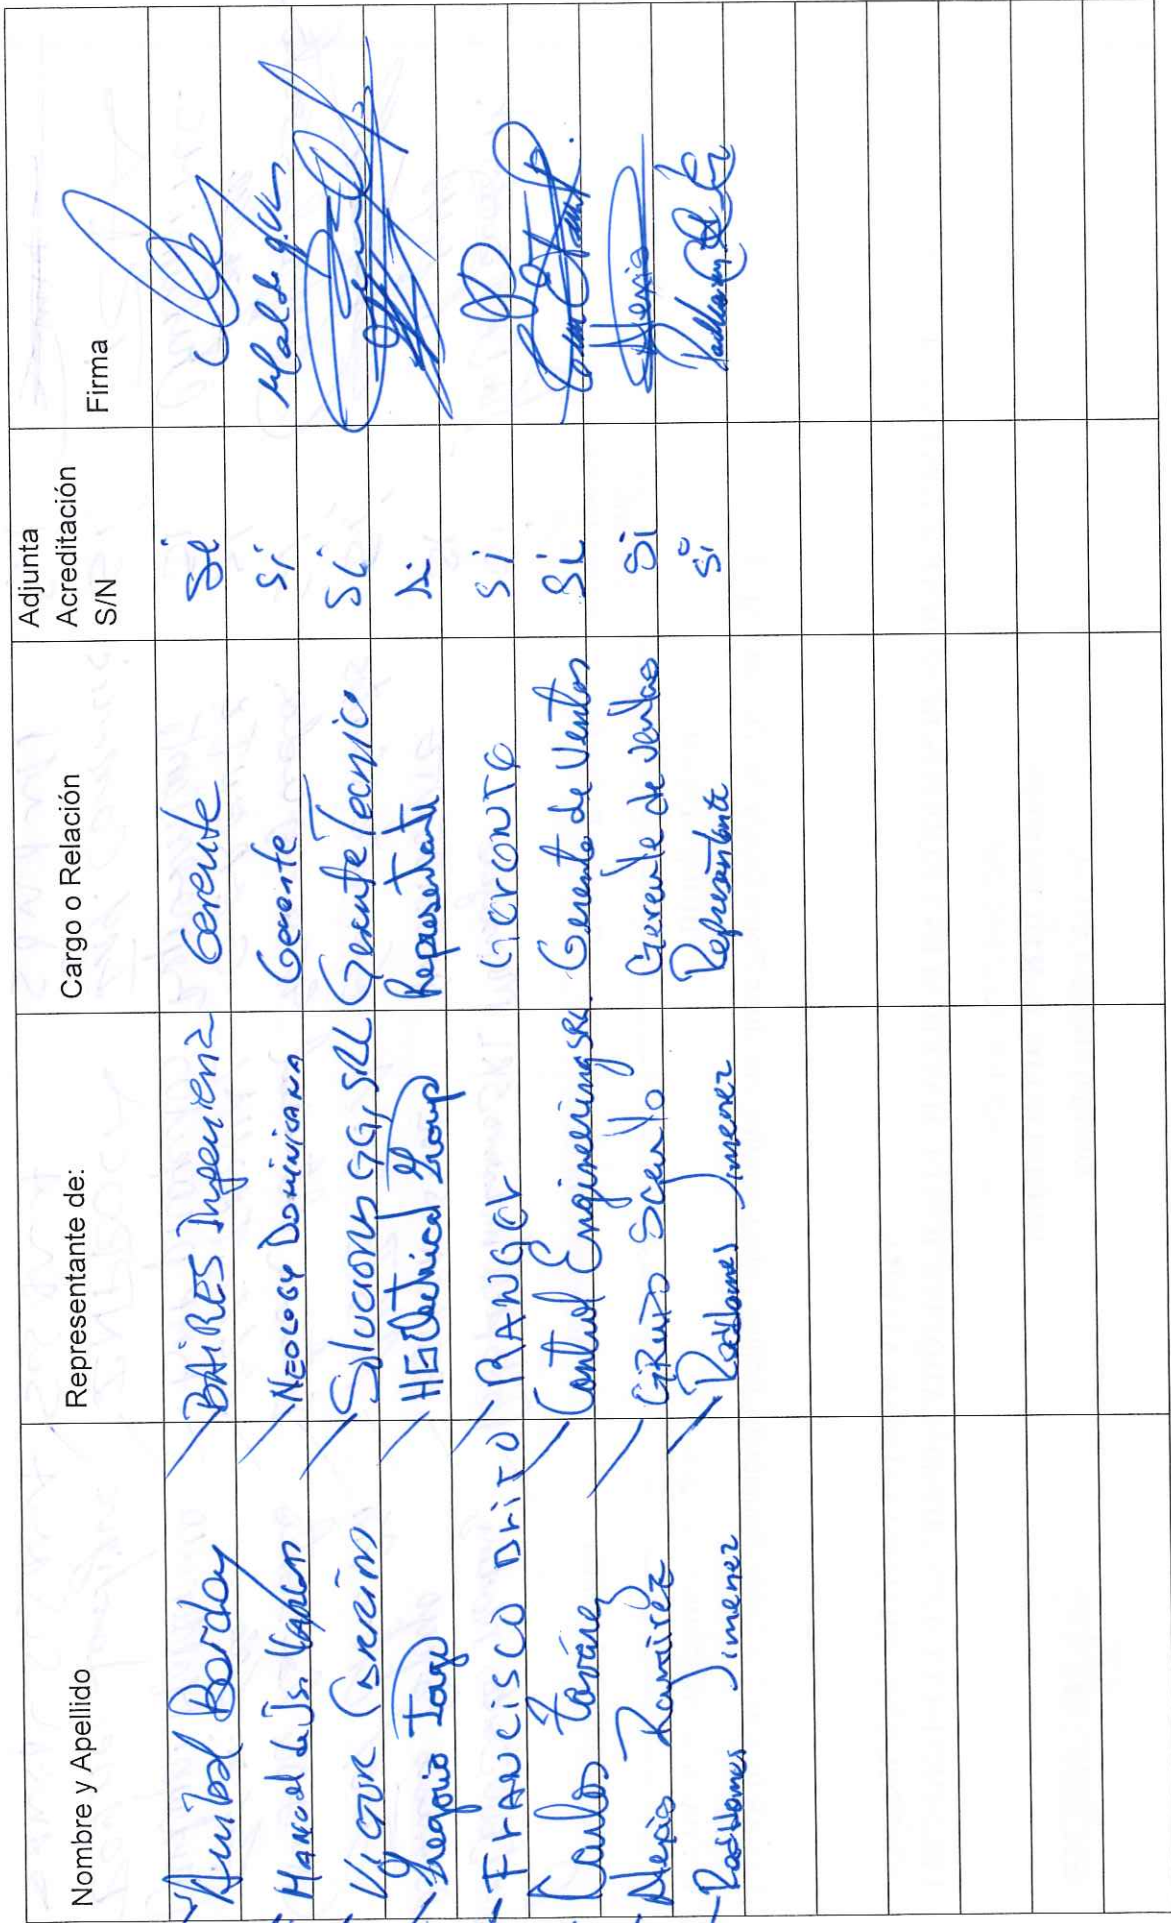 Nombre y Apellido Representante de: Cargo o Relación Adjunta Acreditación S/N Firma
Anibal Barday BAIRES Ingenieria Gerente Si
Manuel de Js. Gerente NEOLOGY DOMINICANA Si
Victor Soluciones GG, SRL Gerente Tecnico Si
Gregorio Jorge HG Electrical Group Representante Si
Francisco Brito RANGER Gerente Si
Carlos Tavárez Control Engineering SRL. Gerente de Ventas Si
Alexis Ramírez GRUPO Gerente de Ventas Si Alexis
Radhames Jimenez Radhames Jimenez Representante Si